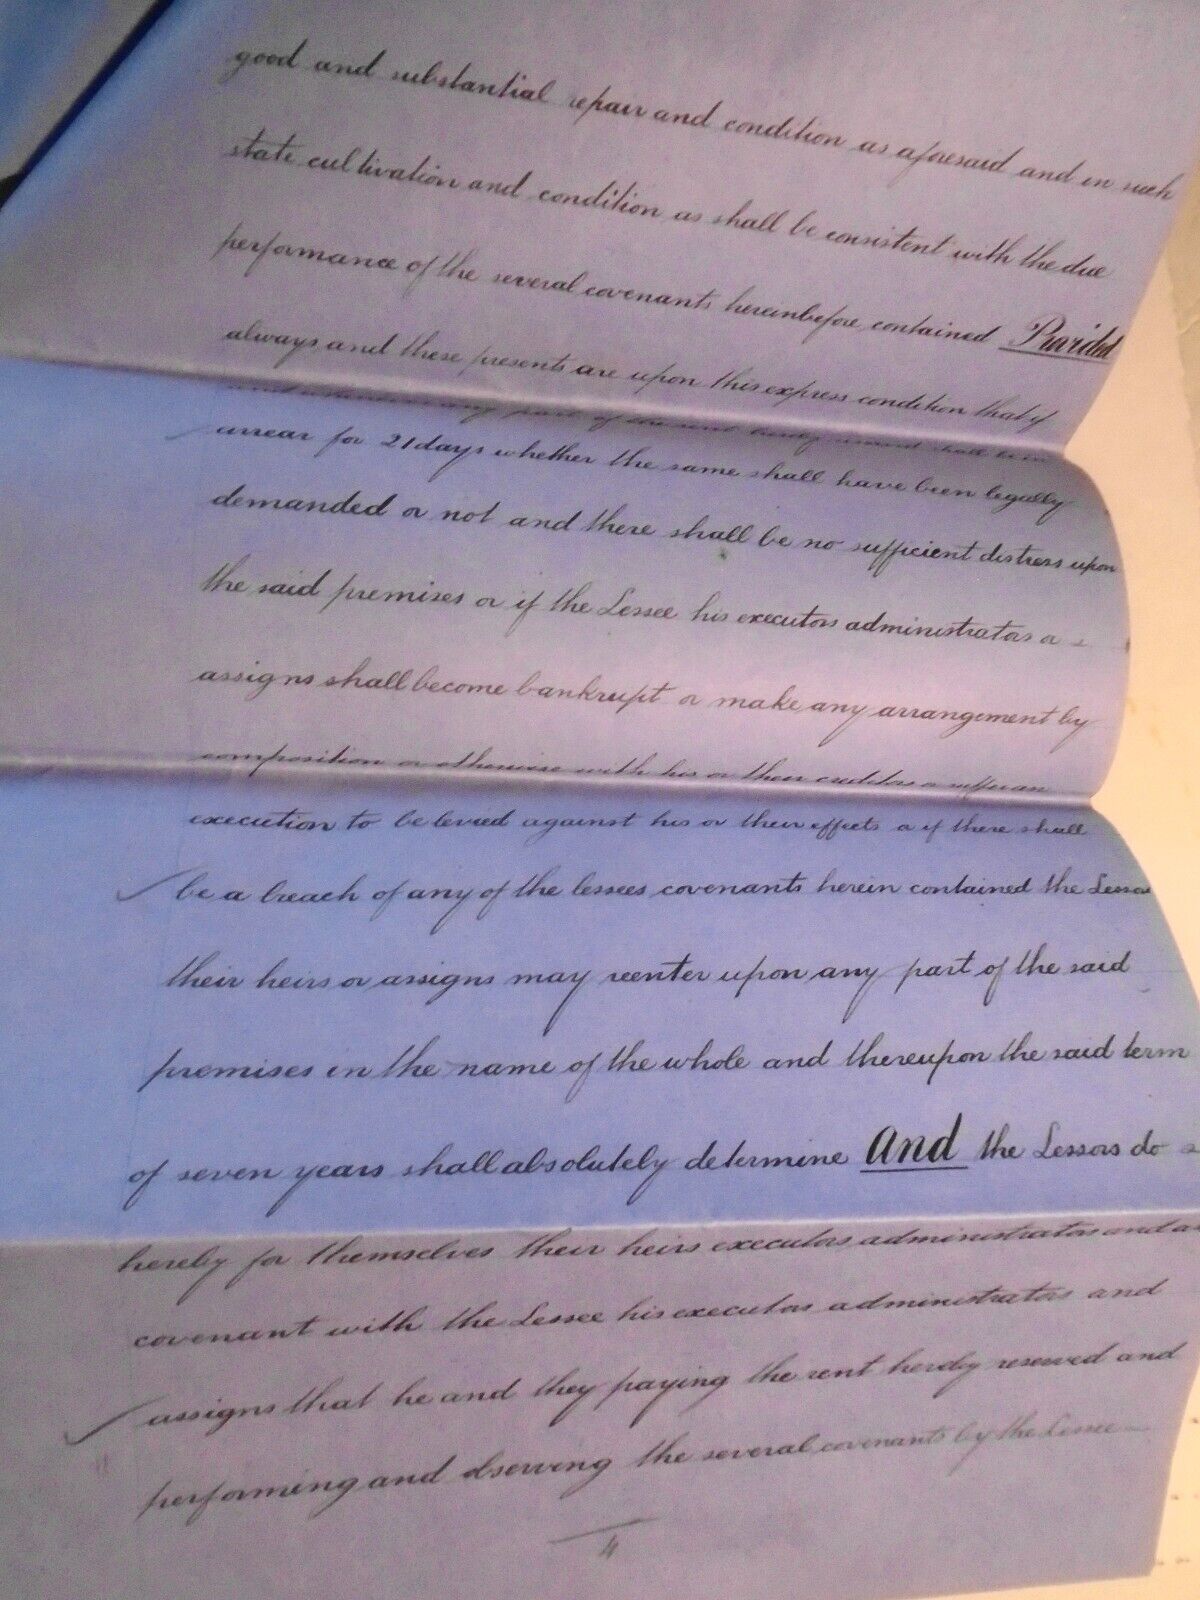 good and substantial repair and condition as aforesaid and in such
state cultivation and condition as shall be consistent with the due
performance of the several covenants hereinbefore contained Provided
always and these presents are upon this express condition that if
any part of the rent hereby reserved shall be in
arrear for 21 days whether the same shall have been legally
demanded or not and there shall be no sufficient distress upon
the said premises or if the Lessee his executors administrators or
assigns shall become bankrupt or make any arrangement by
composition or otherwise with his or their creditors or suffer an
execution to be levied against his or their effects or if there shall
be a breach of any of the lessees covenants herein contained the Lessors
their heirs or assigns may reenter upon any part of the said
premises in the name of the whole and thereupon the said term
of seven years shall absolutely determine And the Lessors do
hereby for themselves their heirs executors administrators and as
covenant with the Lessee his executors administrators and
assigns that he and they paying the rent hereby reserved and
performing and observing the several covenants by the Lessee
4